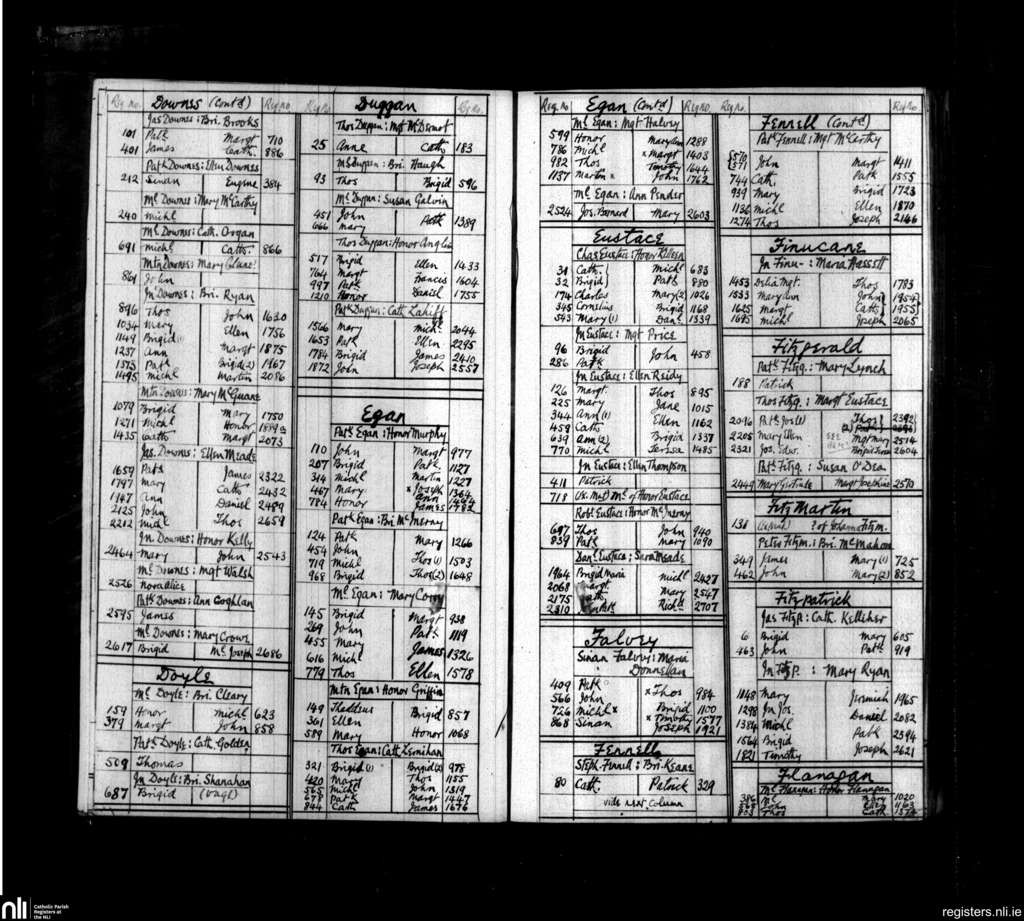 Reg. no. Downes (Cont'd) Reg no.
Jas Downes: Bri. Brooks
101 Patk Margt 710
401 James Cath. 886
Patk Downes: Ellen Downes
212 Sinan Eugene 384
Ml Downes: Mary McCarthy
240 Michl
Ml Downes: Cath. Organ
691 Michl Cath. 866
Mtn Downes: Mary
861 John
Jn Downes: Bri. Ryan
896 Thos John 1630
1034 Mary Ellen 1756
1149 Brigid (1) Margt 1875
1237 Ann Brigid (2) 1967
1375 Patk Martin 2086
1495 Michl
Mtn Downes: Mary McGuane
1079 Brigid Mary 1750
1271 Michl Honor
1435 Cath Margt 2073
Jas. Downes: Ellen Meade
1659 Patk James 2322
1797 Mary Cath 2432
1947 Ann Daniel 2489
2125 John Thos 2659
2212 Michl
Jn Downes: Honor Kelly
2464 Mary John 2543
Ml Downes: Mgt Walsh
2526 Nora Alice
Patk Downes: Ann Coghlan
2595 James
Ml Downes: Mary Crowe
2617 Brigid Ml Joseph 2686
Doyle
Ml Doyle: Bri. Cleary
159 Honor Michl 623
379 Margt John 858
Patk Doyle: Cath Golden
509 Thomas
Jn Doyle: Bri. Shanahan
687 Brigid (vagt)
Reg No Duggan Reg No.
Thos Duggan: Mgt McDermot
25 Anne Cath 183
Ml Duggan: Bri. Haugh
93 Thos Brigid 596
Ml Duggan: Susan Galvin
451 John Patk 1389
666 Mary
Thos Duggan: Honor Anglin
517 Brigid Ellen 1433
764 Margt Frances 1604
997 Patk Daniel 1755
1210 Honor
Patk Duggan: Cath Lahiff
1566 Mary Michl 2044
1653 Patk Ellen 2295
1784 Brigid James 2410
1872 John Joseph 2557
Egan
Patk Egan: Honor Murphy
110 John Margt 977
207 Brigid Patk 1127
314 Michl Martin 1227
467 Mary x Joseph 1364
784 Honor
James 1782
Patk Egan: Bri McInerny
124 Patk Mary 1266
454 John
719 Michl Thos (1) 1503
968 Brigid Thos (2) 1648
Ml Egan: Mary Corry
145 Brigid Margt 938
269 John Patk 1119
455 Mary James 1326
616 Michl
779 Thos Ellen 1578
Mtn Egan: Honor Griffin
149 Thaddeus Brigid 857
361 Ellen
589 Mary Honor 1068
Thos Egan: Cath Lernihan
321 Brigid (1) Brigid (2) 978
420 Mary Thos 1155
565 Michl John 1319
678 Patk Margt 1447
844 Cath James 1676
Reg. No Egan (Cont'd) Reg No.
Ml Egan: Mgt Halvey
599 Honor Mary Ann 1288
786 Michl x Margt 1403
982 Thos Timothy 1644
1137 Martin x John 1762
Ml Egan: Ann Pender
2524 Jos. Bernard Mary 2603
Eustace
Chas Eustace: Honor Killeen
31 Cath Michl 683
32 Brigid Patk 880
174 Charles Mary (2) 1026
345 Cornelius Brigid 1168
543 Mary (1) Danl 1339
Jn Eustace: Mgt Price
96 Brigid John 458
286 Patk
Jn Eustace: Ellen Reidy
126 Margt. Thos 895
225 Mary Jane 1015
344 Ann (1) Ellen 1162
459 Cath Brigid 1337
639 Ann (2) Teresa 1485
770 Michl
Jn Eustace: Ellen Thompson
411 Patrick
718 Mgt Ml of Honor Eustace
Robt Eustace: Honor McInerny
697 Thos John 940
839 Patk Mary 1090
Danl Eustace: Sara Meade
1964 Brigid Maria Michl 2427
2068 Margt Mary 2547
2175 Cath Richd 2707
2310
Falvey
Sinan Falvey: Maria Donnellan
409 Patk x Thos 984
566 John Brigid 1100
726 Michl x x Timothy 1577
868 Sinan Joseph 1921
Fennell
Steph. Fennell: Bri. Keane
80 Cath. Patrick 329
vide next column
Reg No. Fennell (Cont'd) Reg No.
Patk Fennell: Mgt McCarthy
570 571 John Margt 1411
744 Cath. Patk 1555
939 Mary Brigid 1723
1136 Michl Ellen 1870
1274 Thos Joseph 2166
Finucane
Jn Finu-: Maria Hassett
1453 Delia Mgt. Thos 1783
1533 Mary Ann John 1954
1625 Margt Cath 1955
1695 Michl Joseph 2065
Fitzgerald
Patk Fitzg.: Mary Lynch
188 Patrick
Thos Fitzg.: Margt Eustace
2096 Thos 2392
2205 Mary Ellen Mgt Mary 2514
2321 Jos. Edw. Brigid Teresa 2604
Patk Fitzg.: Susan O'Dea
2449 Mary Gertrude Margt Josephine 2570
Fitzmartin
131
Peter Fitzm.: Bri. McMahon
349 James Mary (1) 725
462 John Mary (2) 852
Fitzpatrick
Jas Fitzp: Cath. Kelliher
6 Brigid Mary 605
463 John Patk 919
Jn Fitzp.: Mary Ryan
1148 Mary Jeremiah 1965
1298 Jn Jos. Daniel 2082
1384 Michl Patk 2394
1564 Brigid Joseph 2621
1821 Timothy
Flanagan
Ml Flanagan: Honor Flanagan
386 Ml Mary 1020
John
Thos Cath.
nli Catholic Parish Registers at the NLI
registers.nli.ie